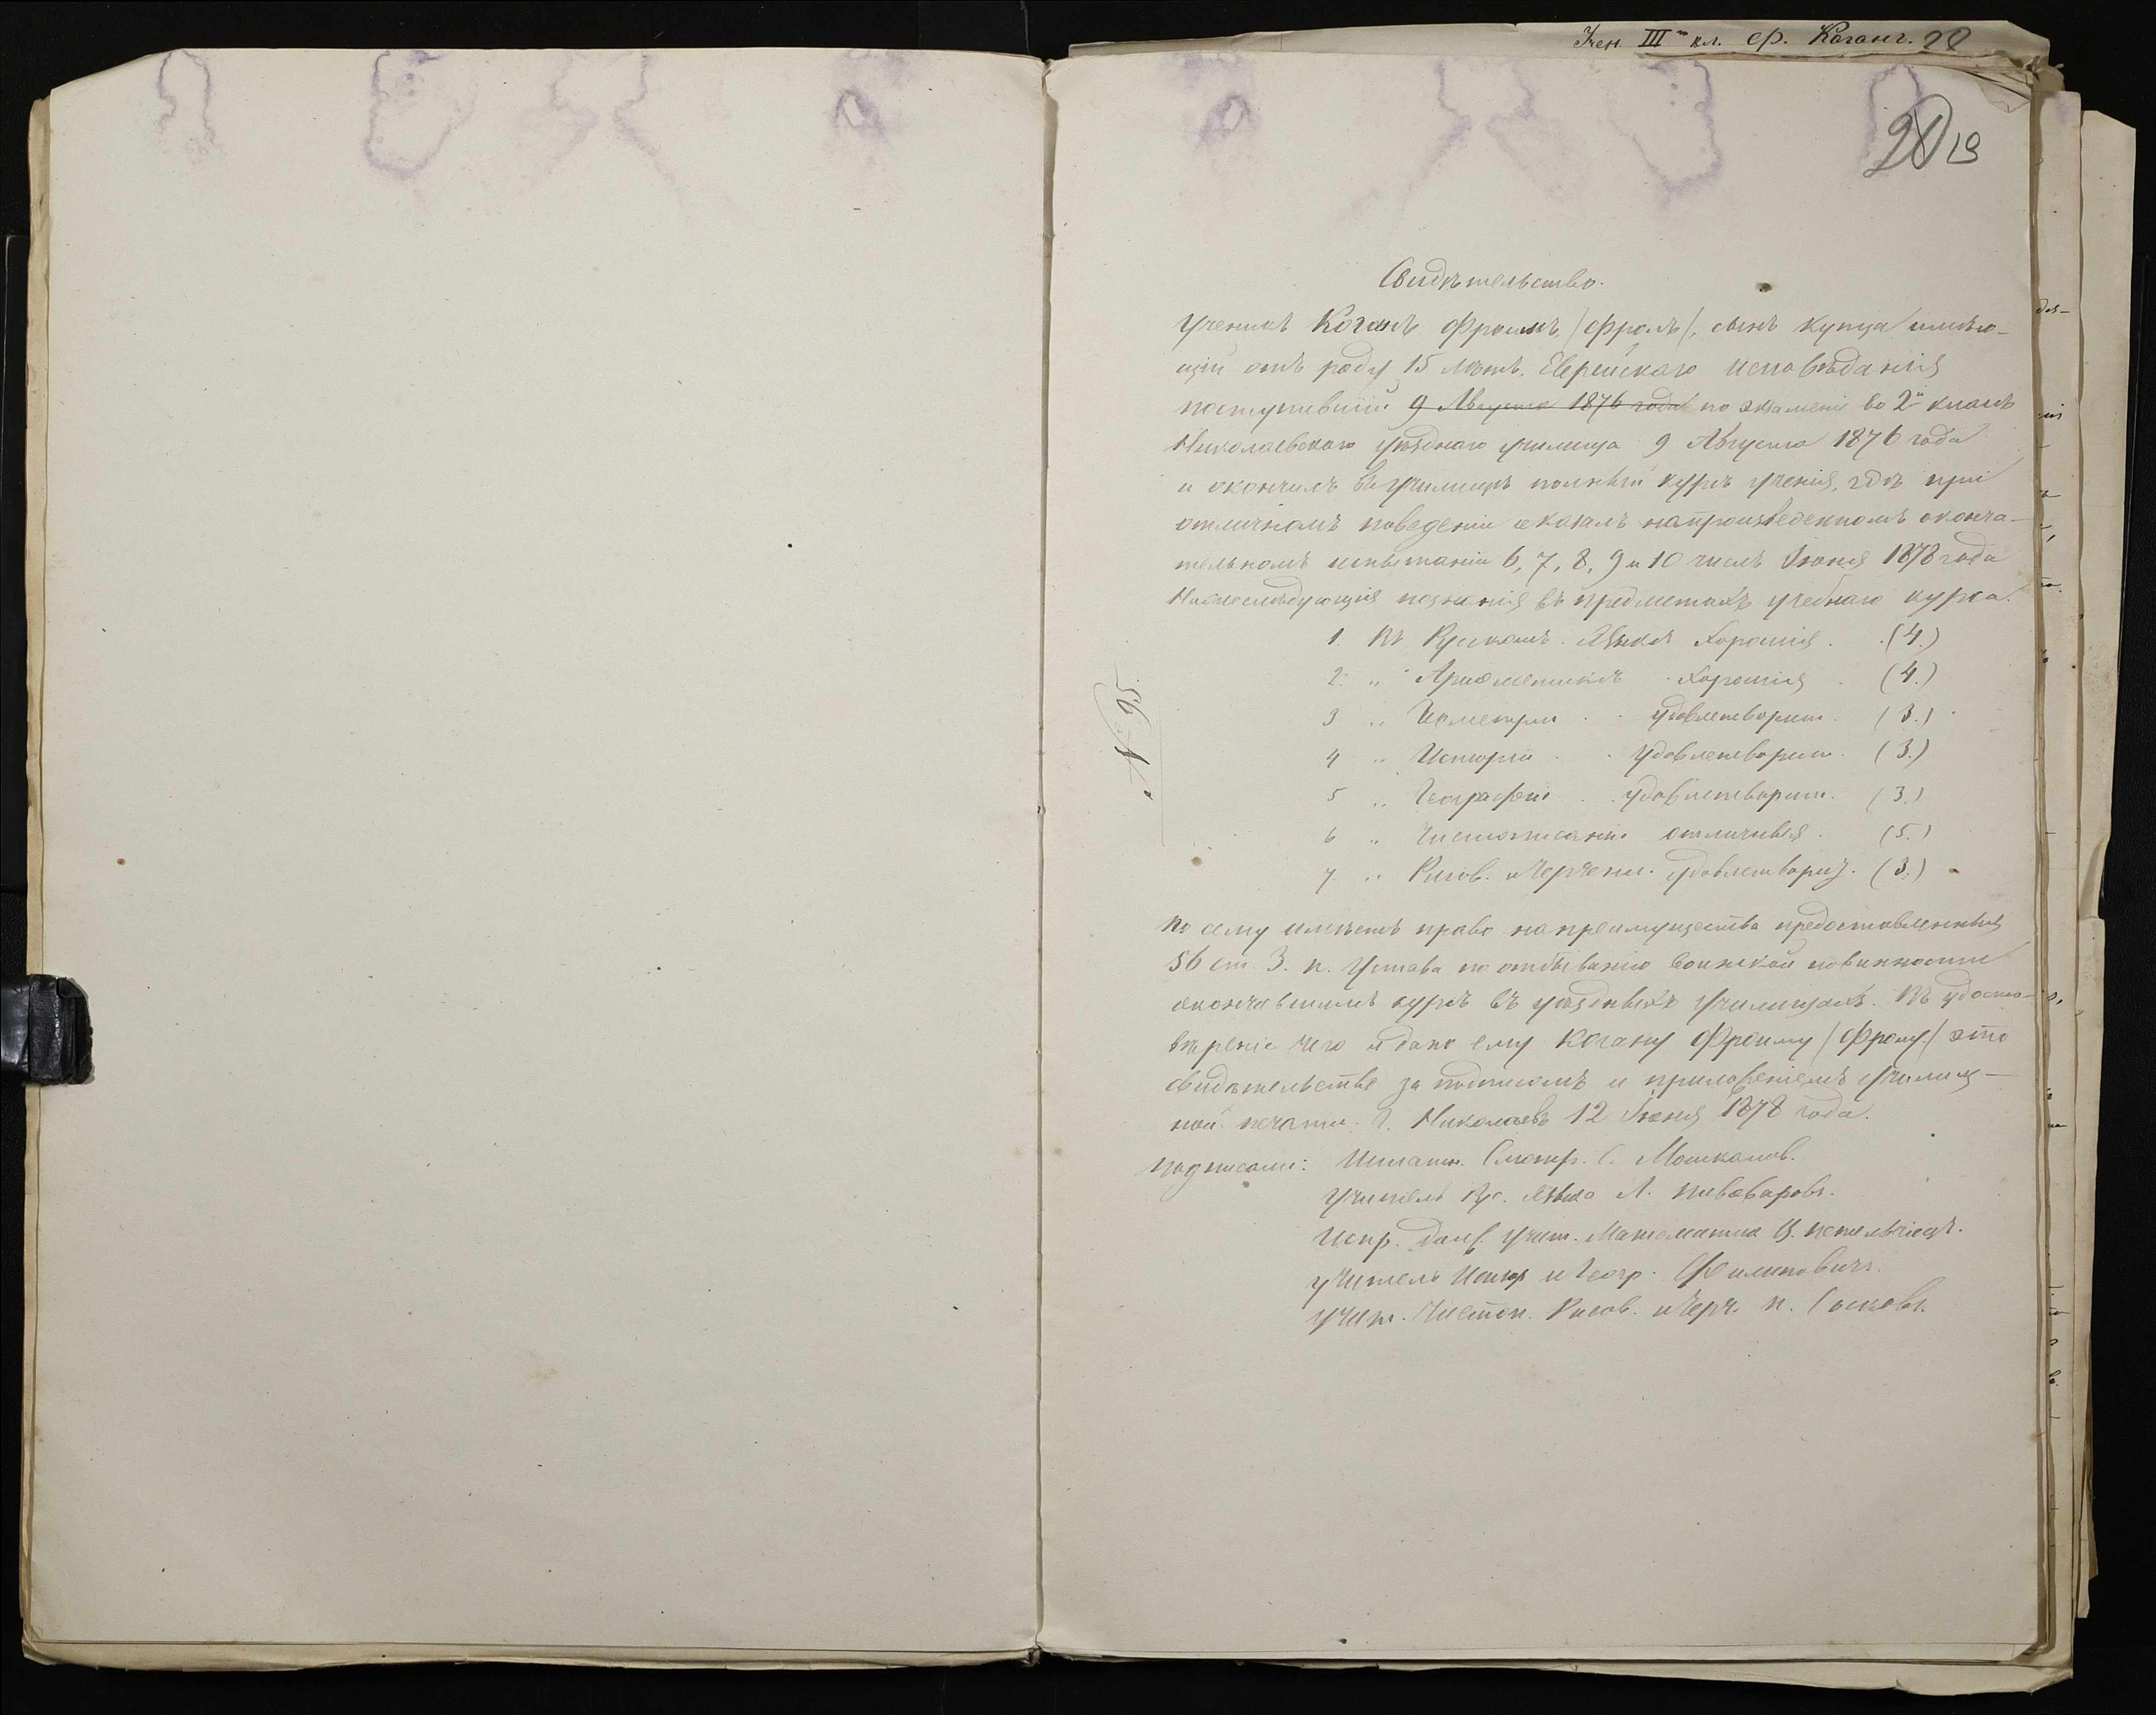 Учен. III го кл. Ф. Коганъ. 20
20 19
Свидѣтельство.
Ученикъ Коганъ Фроимъ /Фролъ/, сынъ купца имѣю-
щій отъ роду 15 лѣтъ, Еврейскаго исповѣданія
поступившій 9 Августа 1876 года по экзамену во 2й классъ
Николаевскаго уѣзднаго училища 9 Августа 1876 года
и окончилъ въ училищѣ полный курсъ ученія, гдѣ при
отличномъ поведеніи оказалъ на произведенномъ оконча-
тельномъ испытаніи 6, 7, 8, 9 и 10 числъ Іюня 1878 года
Нижеслѣдующія познанія въ предметахъ учебнаго курса.
1. Въ Русскомъ Языкѣ Хорошія . . (4.)
2. " Ариѳметикѣ . Хорошія . (4.)
3 " Геометріи . . удовлетворит. (3.)
4 " Исторіи . . Удовлетворит. (3.)
5 " Географіи . . удовлетворит. (3.)
6 " Чистописаніи отличныя . (5.)
7. " Рисов. и Черчени. удовлетвори. (3.)
№ 95.
по сему имѣетъ право на преимущества предоставленныя
56 ст. 3. п. Устава по отбыванію воинской повинности
окончившимъ курсъ въ уѣздныхъ училищахъ. Въ удосто-
вѣреніе чего и дано ему Когану Фроиму /Фролу/ это
свидѣтельство за подписомъ и приложеніемъ училищ-
ной печати. Г. Николаевъ 12 Іюня 1878 года.
подписали: Штатн. Смотр. С. Мошкалов.
Учитель Рус. языка Л. Пивоваровъ.
Испр. долж. учит. Математики
учитель Истор и Геогр. Филиповичъ.
учит. Чистоп. Рисов. и Черч. п.